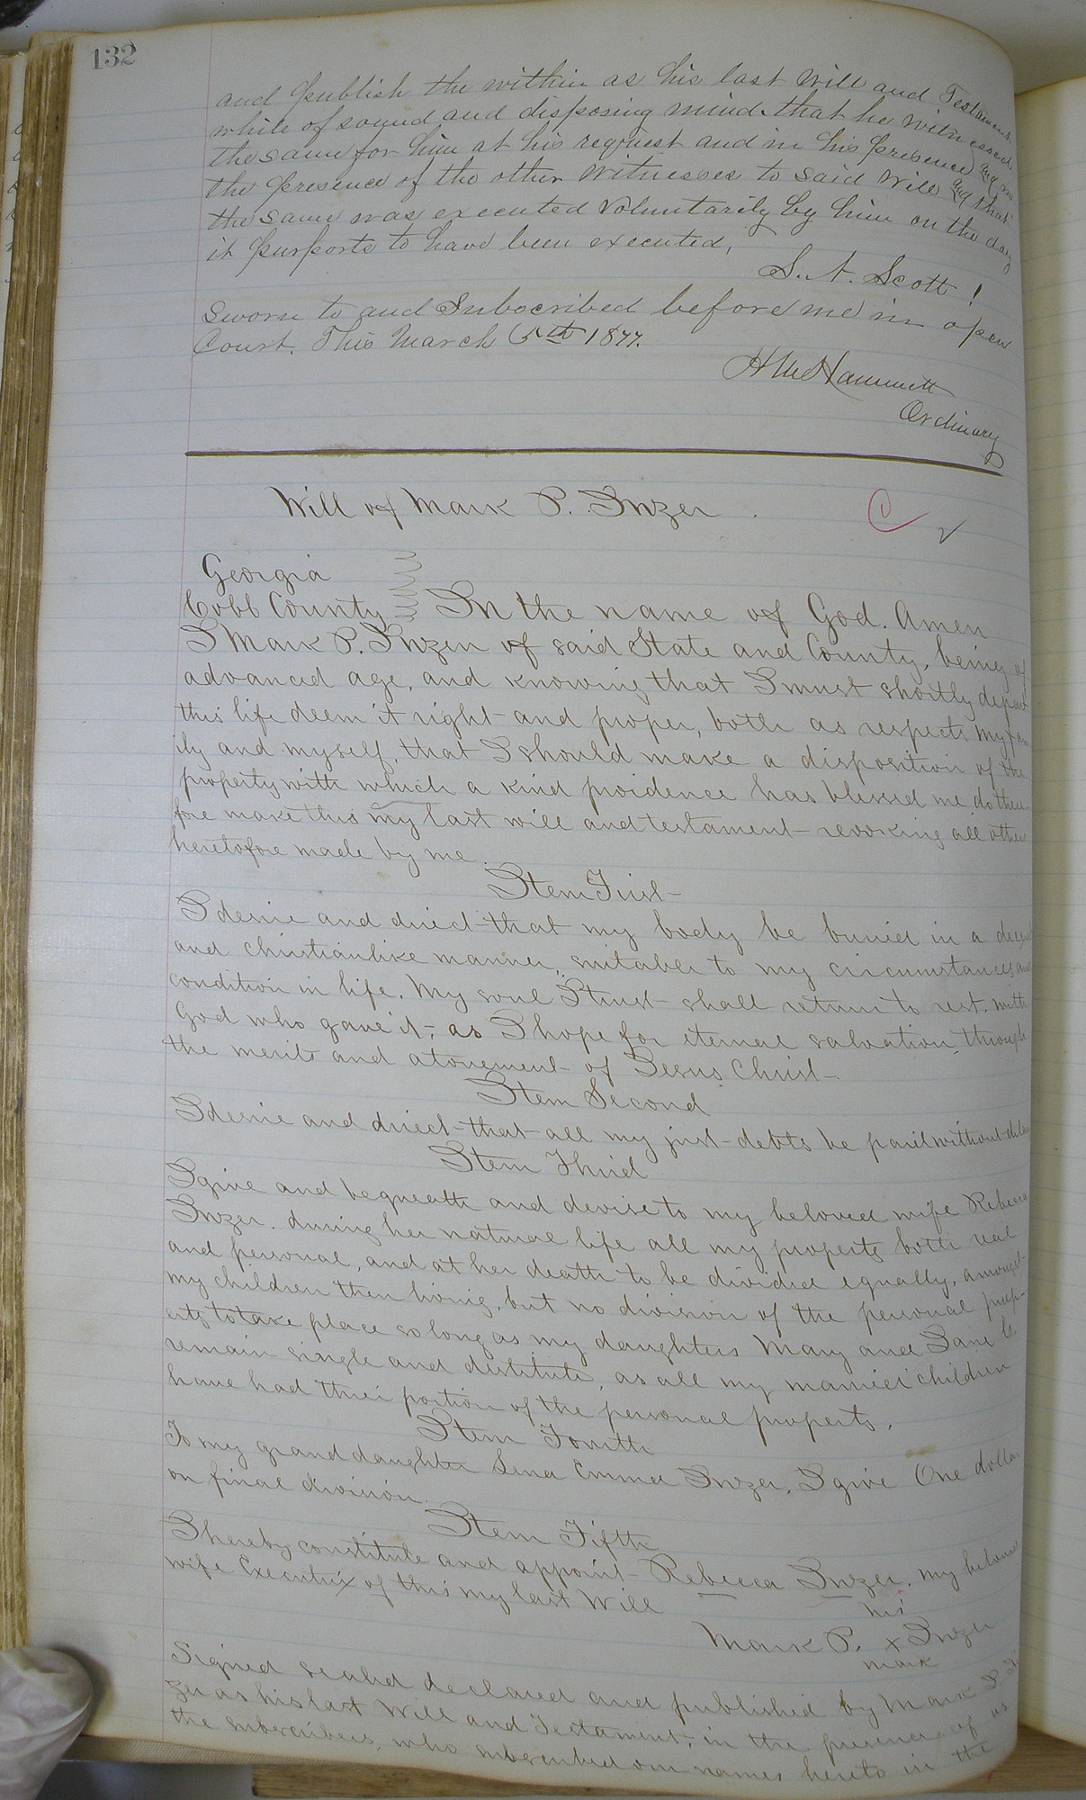 132
and publish the within as his last Will and Testament
while of sound and disposing mind. that he witnessed
the same for him at his request and in his presence and in
the presence of the other Witnesses to said Will and that
the same was executed Voluntarily by him on the day
it purports to have been executed.
S. A. Scott !
Sworn to and Subscribed before me in open
Court. This March 5th 1877.
H M Hammett
Ordinary
Will of Mark P. Inzer.
Georgia
Cobb County In the name of God. Amen
I Mark P. Inzer of said State and County, being of
advanced age, and knowing that I must shortly depart
this life deem it right and proper, both as respects my fam
ily and myself, that I should make a disposition of the
property with which a kind providence has blessed me do there
fore make this my last will and testament revoking all others
heretofore made by me.
Item First
I desire and direct that my body be buried in a decent
and christianlike manner, suitable to my circumstances and
condition in life. My soul I trust shall return to rest with
God who gave it, as I hope for eternal salvation through
the merits and atonement of Jesus Christ
Item Second
I desire and direct that all my just debts be paid without delay
Item Third
I give and bequeath and devise to my beloved wife Rebecca
Inzer. during her natural life all my property both real
and personal, and at her death to be divided equally, amongst
my children then living, but no division of the personal prop-
erty to take place so long as my daughters Mary and Jane
remain single and destitute, as all my married children
have had their portion of the personal property.
Item Fourth
To my granddaughter Emmer Inzer, I give One dollar
on final division.
Item Fifth
I hereby constitute and appoint Rebecca Inzer. my beloved
wife Executrix of this my last Will
his
Mark P. x Inzer
mark
Signed seald declared and published by Mark P. In
zer as his last Will and Testament, in the presence of us
the subscribers, who subscribed our names hereto in the